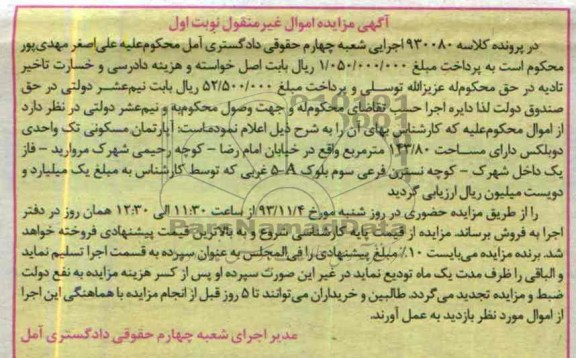 آگهی مزایده اموال غیرمنقول نوبت اول
در پرونده کلاسه ۹۳۰۰۸۰ اجرایی شعبه چهارم حقوقی دادگستری آمل محکوم‌علیه علی‌اصغر مهدی‌پور
محکوم است به پرداخت مبلغ ۱/۰۵۰/۰۰۰/۰۰۰ ریال بابت اصل خواسته و هزینه دادرسی و خسارت تاخیر
تادیه در حق محکوم‌له عزیزالله توسلی و پرداخت مبلغ ۵۲/۵۰۰/۰۰۰ ریال بابت نیم‌عشر دولتی در حق
صندوق دولت لذا دایره اجرا حسب تقاضای محکوم‌له و جهت وصول محکوم‌به و نیم‌عشر دولتی در نظر دارد
از اموال محکوم‌علیه که کارشناس بهای آن را به شرح ذیل اعلام نموده‌است: آپارتمان مسکونی تک واحدی
دوبلکس دارای مساحت ۱۴۳/۸۰ مترمربع واقع در خیابان امام رضا - کوچه رحیمی شهرک مروارید - فاز
یک داخل شهرک - کوچه نسترن فرعی سوم بلوک A-۵ غربی که توسط کارشناس به مبلغ یک میلیارد و
دویست میلیون ریال ارزیابی گردید
را از طریق مزایده حضوری در روز شنبه مورخ ۹۳/۱۱/۴ از ساعت ۱۱:۳۰ الی ۱۲:۳۰ همان روز در دفتر
اجرا به فروش برساند. مزایده از قیمت پایه کارشناسی شروع و به بالاترین قیمت پیشنهادی فروخته خواهد
شد. برنده مزایده می‌بایست ۱۰٪ مبلغ پیشنهادی را فی‌المجلس به عنوان سپرده به قسمت اجرا تسلیم نماید
و الباقی را ظرف مدت یک ماه تودیع نماید در غیر این صورت سپرده او پس از کسر هزینه مزایده به نفع دولت
ضبط و مزایده تجدید می‌گردد. طالبین و خریداران می‌توانند تا ۵ روز قبل از انجام مزایده با هماهنگی این اجرا
از اموال مورد نظر بازدید به عمل آورند.
مدیر اجرای شعبه چهارم حقوقی دادگستری آمل